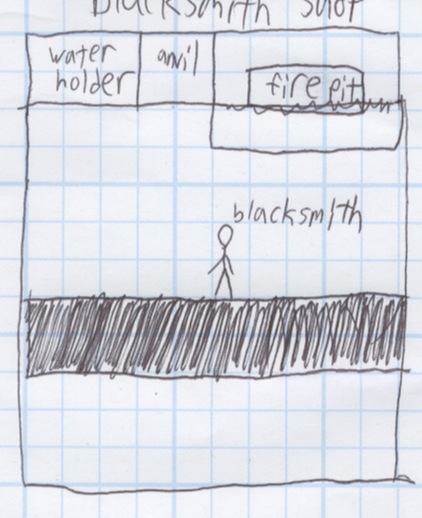 blacksmith shop
water
holder
anvil
fire pit
blacksmith